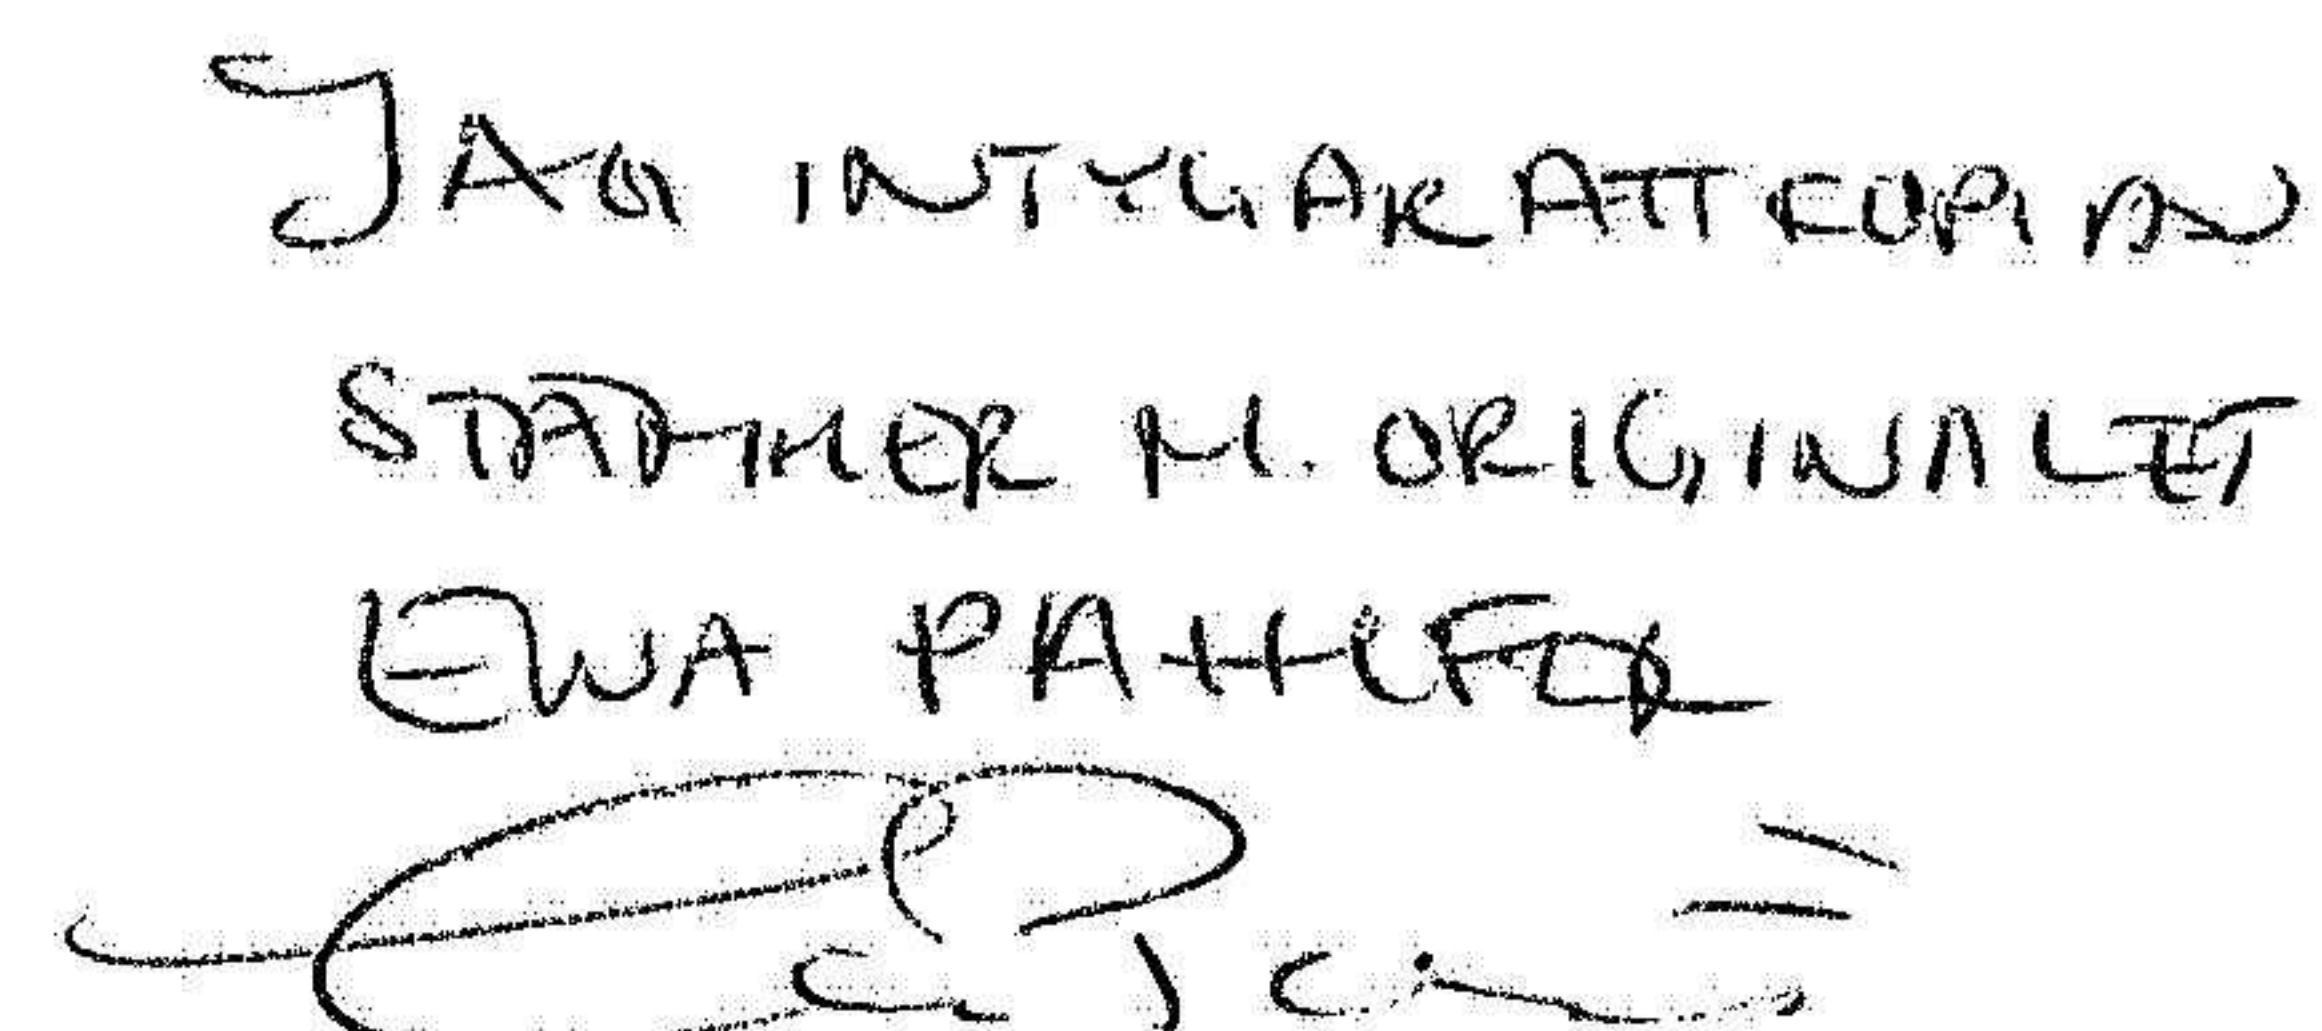 JAG INTYGAR ATT KOPIAN
STÄMMER M. ORIGINALET
EWA